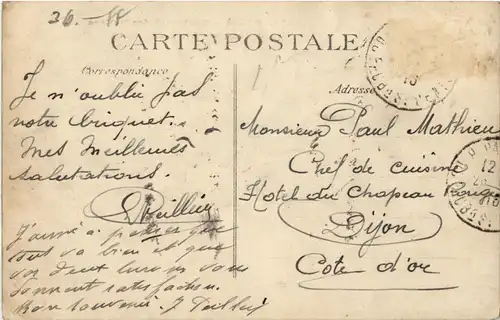 26.
CARTE POSTALE
Correspondance
Adresse
Je n'oublie pas
notre briquet.
Mes Meilleures
salutations.
J'aime à penser que
tout va bien et que
vos deux vous
donnent satisfaction.
Bon souvenir. J
Monsieur Paul Mathieu
Chef de cuisine
Hotel du Chapeau Rouge
Dijon
Cote d'or
12